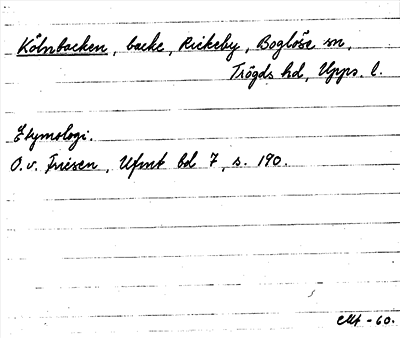 Kölnbacken, backe, Rickeby, Boglösa sn,
Trögds hd, Upps. l.
Etymologi.
O. v. Friesen, Ufmt bd 7, s. 190.
-60.